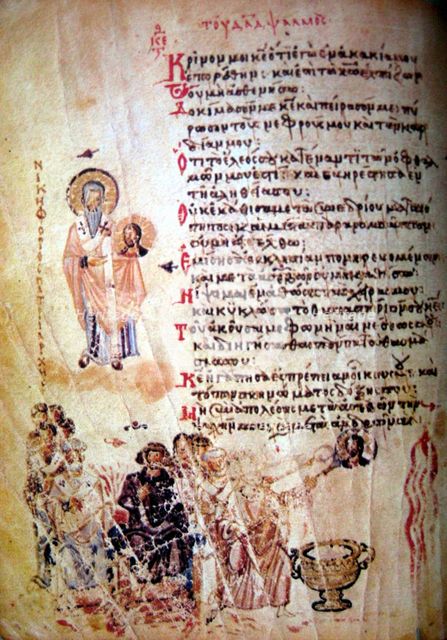 τοῦ δαδ ψαλμος
Κρῖνόν με κε ὅτι ἐγὼ ἐν ἀκακία μου
ἐπορεύθην· καὶ ἐπὶ τῶ κω ἐλπίζων
οὐ μὴ ἀσθενήσω:
Δοκίμασόν με κε καὶ πείρασόν με· πύ
ρωσον τοὺς νεφρούς μου καὶ τὴν καρ
δίαν μου:
Ὅτι τὸ ἔλεός σου κατέναντι τῶν ὀφθαλ
μῶν μου ἐστί· καὶ εὐηρέστησα ἐν
τῆ ἀληθεία σου:
Οὐκ ἐκάθισα μετὰ συνεδρίου ματαιό
τητος καὶ μετὰ παρανομούντων
οὐ μὴ εἰσέλθω:
Ἐμίσησα ἐκκλησίαν πονηρευομένων
καὶ μετὰ ἀσεβῶν οὐ μὴ καθίσω:
Νίψομαι ἐν ἀθώοις τὰς χεῖράς μου·
καὶ κυκλώσω τὸ θυσιαστήριόν σου κε
Τοῦ ἀκοῦσαί με φωνῆς αἰνέσεώς σου
καὶ διηγήσασθαι πάντα τὰ θαυμά
σιά σου:
Κε ἠγάπησα εὐπρέπειαν οἴκου σου· καὶ
τόπον σκηνώματος δόξης σου:
Μὴ συναπολέσης μετὰ ἀσεβῶν τὴν
ΝΙΚΗΦΟΡΟΣ ΠΑΤΡΙΑΡΧΗΣ